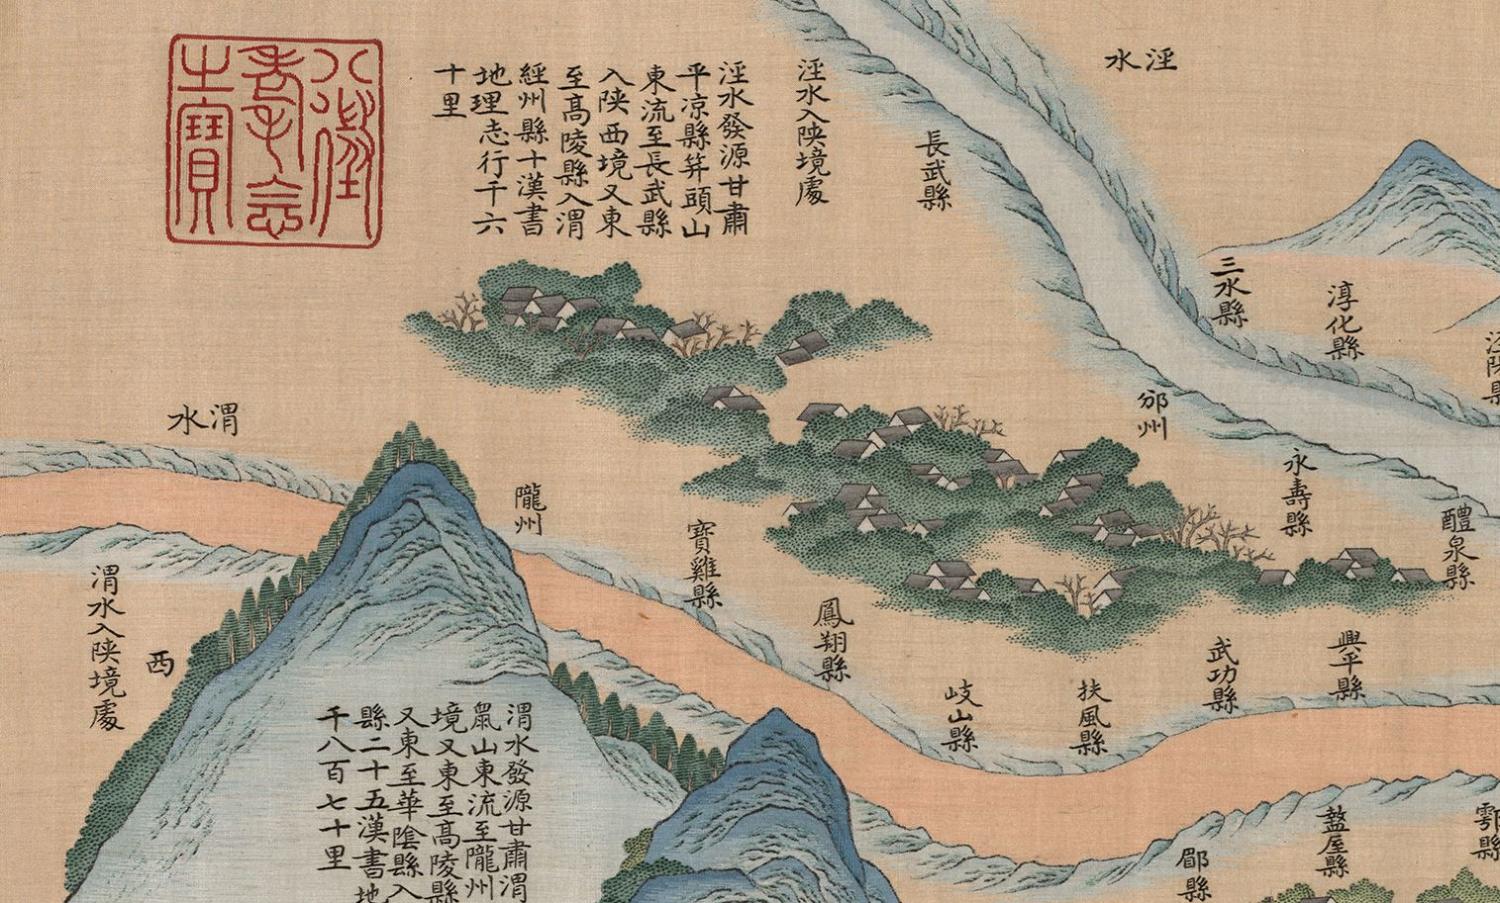 涇水
涇水入陕境處
涇水發源甘肅
平凉縣筓頭山
東流至長武縣
入陕西境又東
至高陵縣入渭
經州縣十漢書
地理志行千六
十里
八徵
耄念
之寶
長武縣
三水縣
淳化縣
邠州
永壽縣
醴泉縣
渭水
隴州
寶雞縣
鳳翔縣
岐山縣
扶風縣
武功縣
興平縣
渭水入陕境處
西
渭水發源甘肅渭
鼠山東流至隴州
境又東至高陵縣
又東至華隂縣入
縣二十五漢書地
千八百七十里
鄠縣
盩屋縣
郿縣